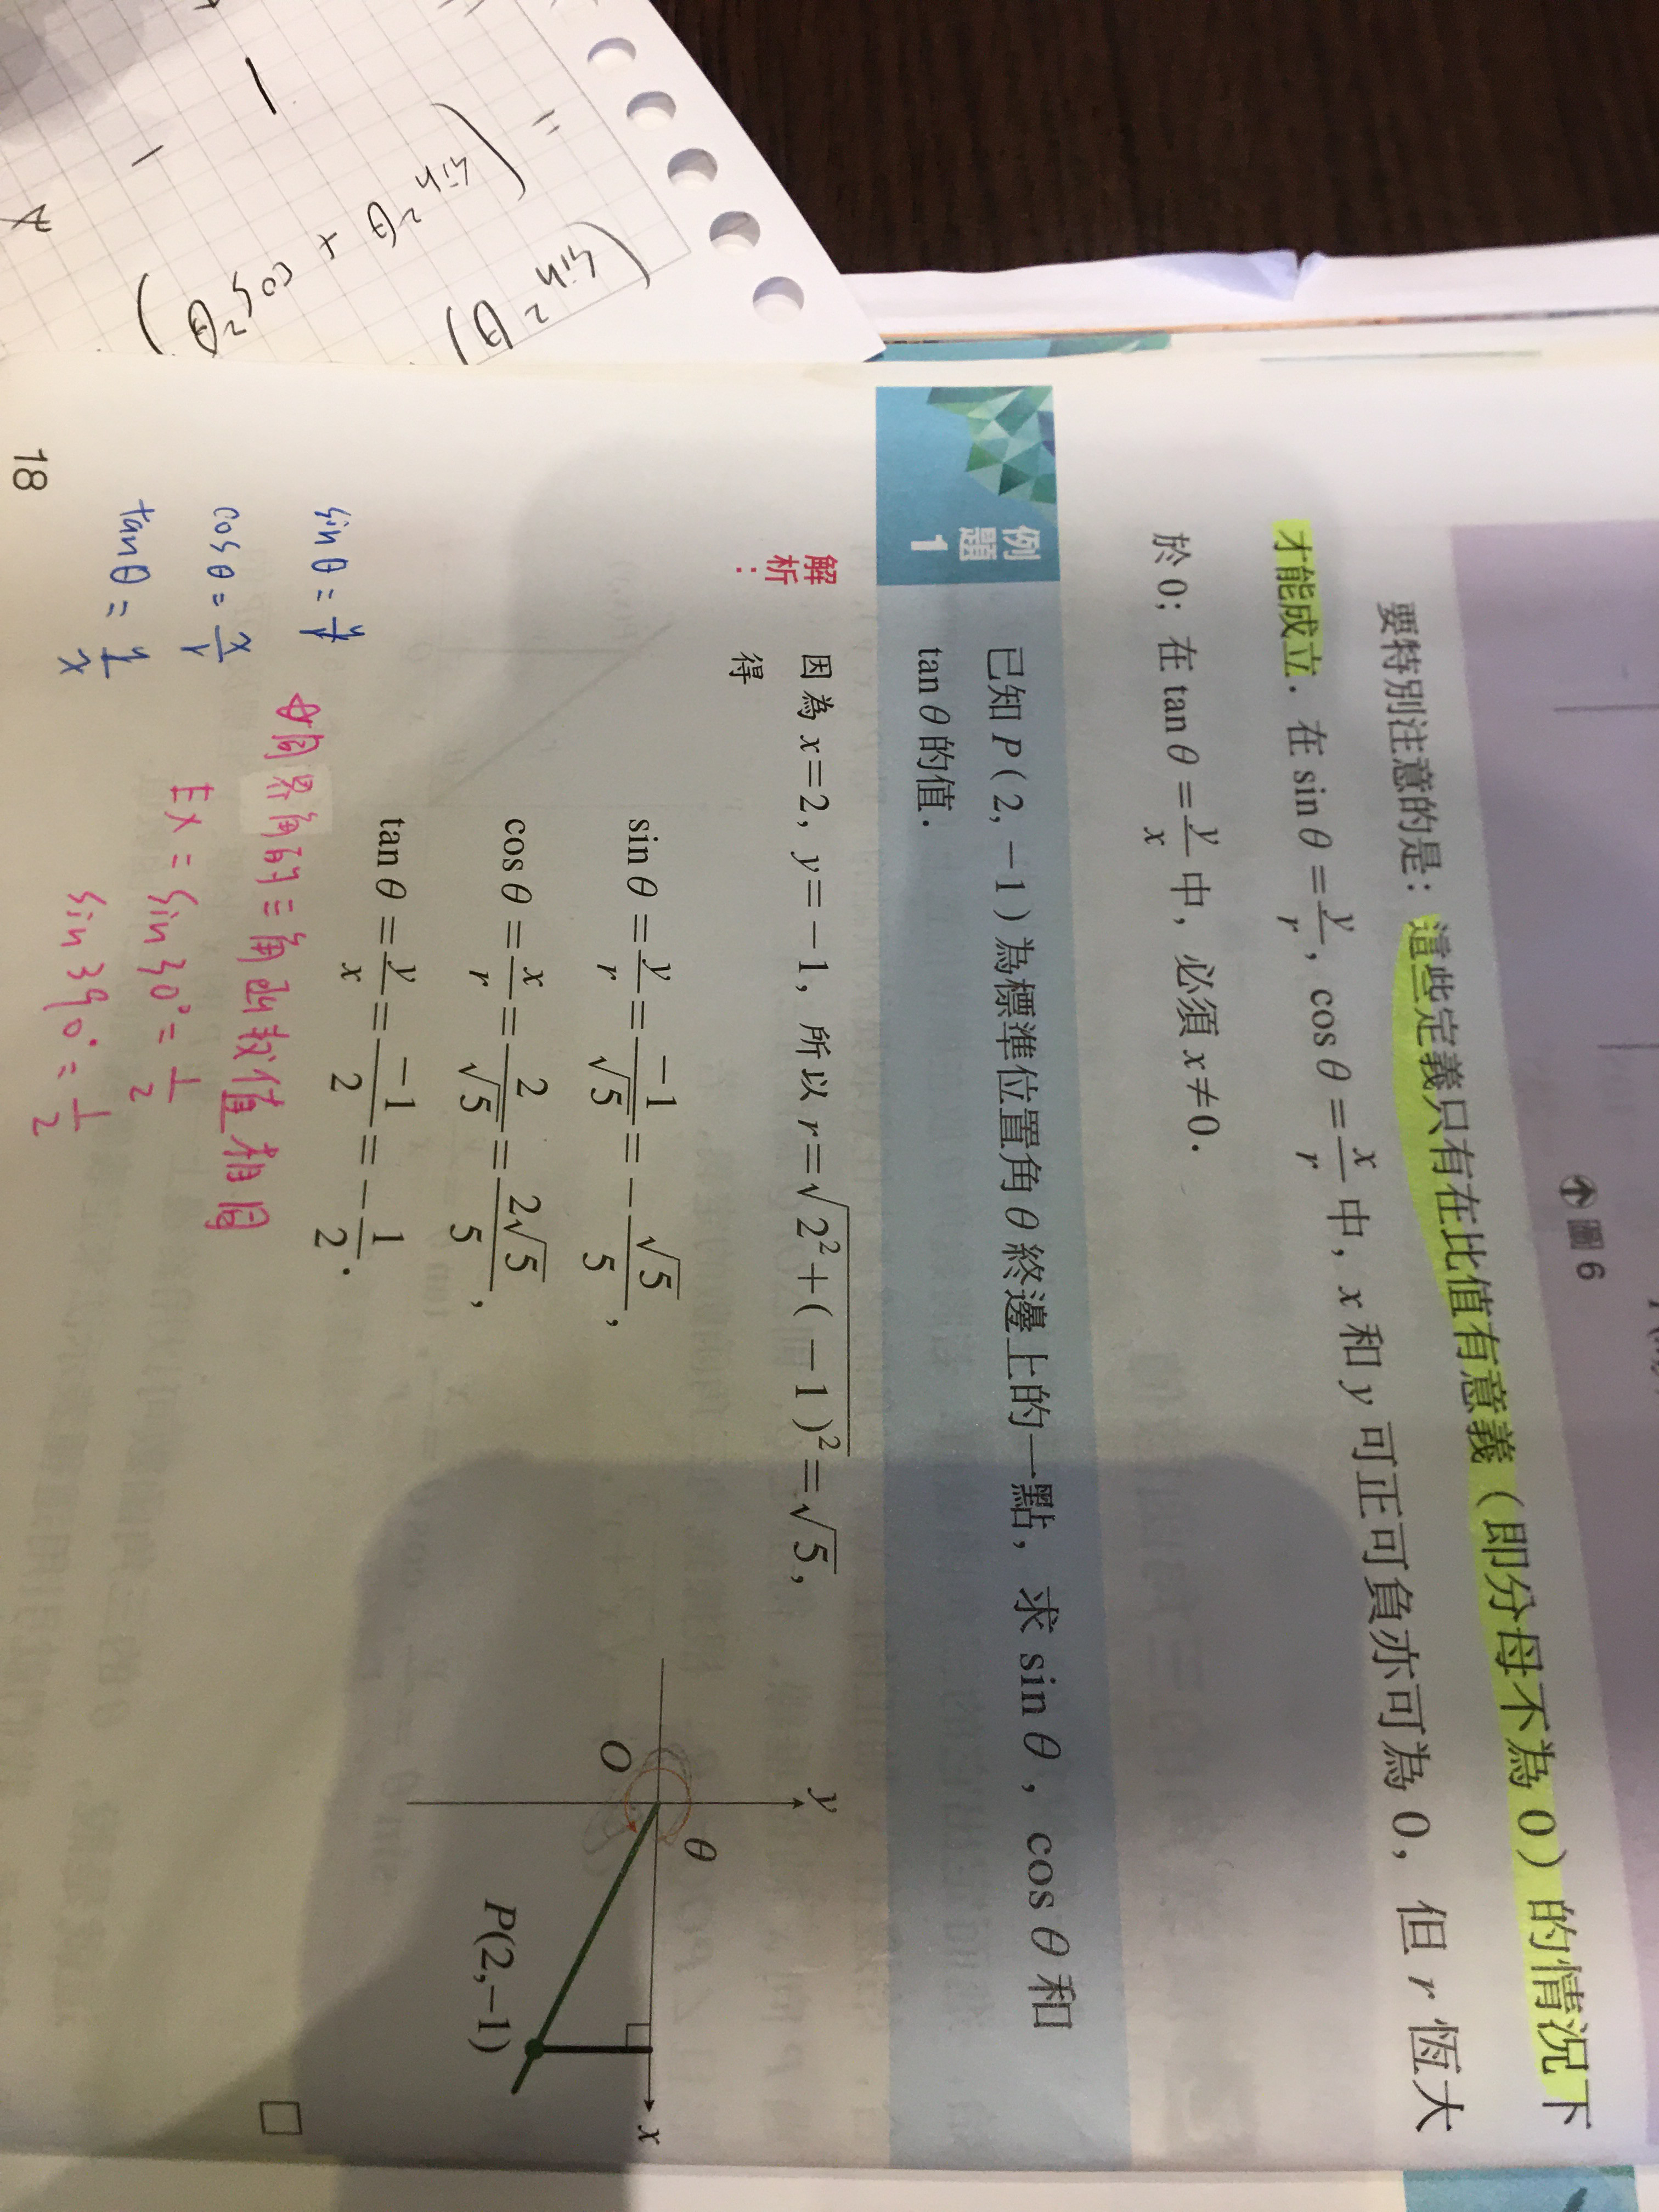 圖6
要特別注意的是：這些定義只有在比值有意義（即分母不為 0）的情況下
才能成立．在 sin θ = y/r，cos θ = x/r 中，x 和 y 可正可負亦可為 0，但 r 恆大
於 0；在 tan θ = y/x 中，必須 x ≠ 0．
例題 1
已知 P（2, −1）為標準位置角 θ 終邊上的一點，求 sin θ，cos θ 和
tan θ 的值．
解析：
因為 x = 2，y = −1，所以 r = √(2² + (−1)²) = √5，
得
sin θ = y/r = −1/√5 = −√5/5，
cos θ = x/r = 2/√5 = 2√5/5，
tan θ = y/x = −1/2 = −1/2．
y
θ
O
x
P(2,−1)
sin θ = y/r
cos θ = x/r
tan θ = y/x
同界角的三角函數值相同
EX = sin 30° = 1/2
sin 390° = 1/2
18
(sin²θ)
= (sin²θ + cos²θ)